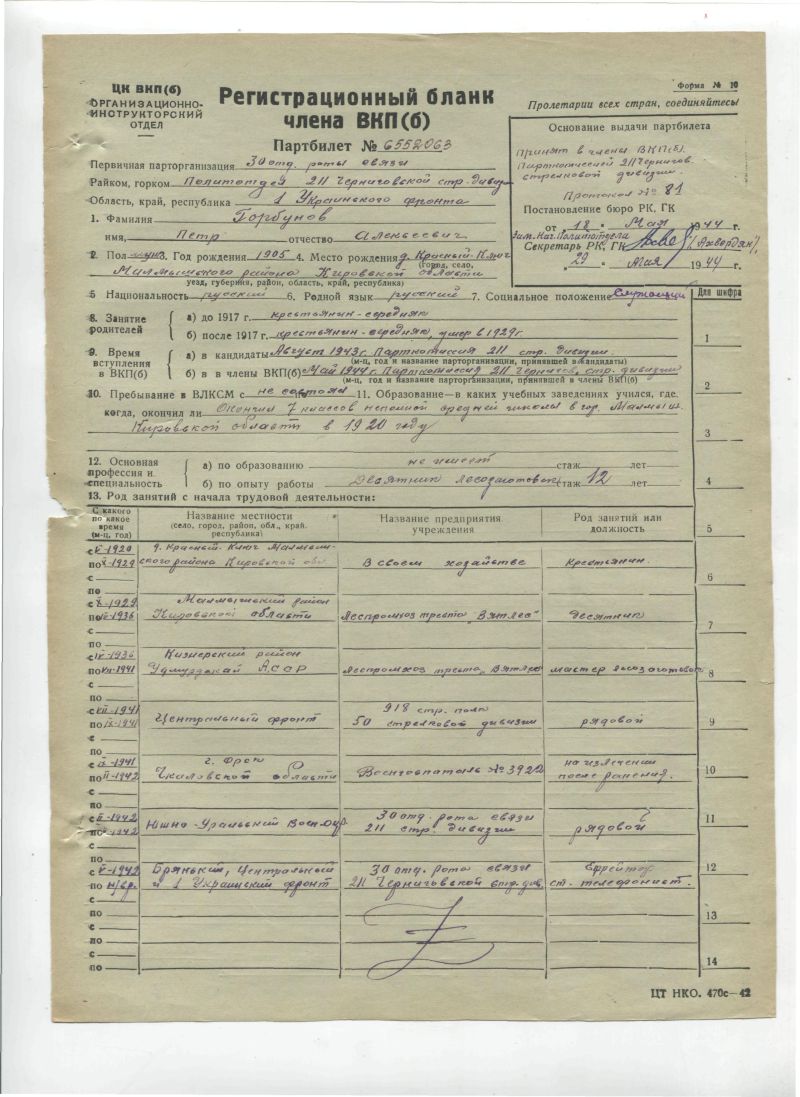 ЦК ВКП(б)
ОРГАНИЗАЦИОННО-
ИНСТРУКТОРСКИЙ
ОТДЕЛ
Форма № 10
Регистрационный бланк
члена ВКП(б)
Пролетарии всех стран, соединяйтесь!
Партбилет № 6552063
Основание выдачи партбилета
Принят в члены ВКП(б).
Парткомиссией 211 Чернигов.
стрелковой дивизии.
Протокол № 81
Постановление бюро РК, ГК
от „18„ Мая 1944 г.
Зам. Нач. Политотдела
Секретарь РК, ГК
„29„ мая 1944 г.
Первичная парторганизация 30 отд. роты связи
Райком, горком Политотдел 211 Черниговской стр. дивиз.
Область, край, республика 1 Украинского фронта
1. Фамилия Горбунов
имя, Петр отчество Алексеевич
2. Пол муж 3. Год рождения 1905 4. Место рождения д. Красный-Ключ
(город, село,
Малмыжского района Кировской области
уезд, губерния, район, область, край, республика)
5 Национальность русский 6. Родной язык русский 7. Социальное положение Служащий
Для шифра
8. Занятие родителей
а) до 1917 г. крестьянин-середняк
б) после 1917 г. крестьянин-середняк, умер в 1929г.
9. Время вступления в ВКП(б)
а) в кандидаты Август 1943 г. Парткомиссия 211 стр. дивизии.
(м-ц, год и название парторганизации, принявшей в кандидаты)
б) в в члены ВКП(б) май 1944 г. Парткомиссия 211 Чернигов. стр. дивизии
(м-ц, год и название парторганизации, принявшей в члены ВКП(б)
10. Пребывание в ВЛКСМ с не состоял 11. Образование—в каких учебных заведениях учился, где,
когда, окончил ли Окончил 7 классов неполной средней школы в гор. Малмыж
Кировской области в 1920 году
12. Основная профессия и специальность
а) по образованию не имеет стаж лет
б) по опыту работы Десятник лесозаготовок стаж 12 лет
13. Род занятий с начала трудовой деятельности:
С какого по какое время (м-ц, год)
Название местности
(село, город, район, обл., край, республика)
Название предприятия учреждения
Род занятий или должность
с V-1920 д. Красный-Ключ Малмыж-
по X-1929 ского района Кировской обл. В своем хозяйстве Крестьянин.
с
по
с X-1929 Малмыжский район
по IV-1936 Кировской области Леспромхоз треста "Вятлес" десятник
с
по
с IV-1936 Кизнерский район
по VII-1941 Удмурдской АССР Леспромхоз треста „Вятлес мастер лесозаготовок
с
по
с VII-1941 918 стр. полк
по IX-1941 Центральный фронт 50 стрелковой дивизии рядовой
с
по
с IX-1941 г. Орск на излечении
по II-1942 Чкаловской области Военгоспиталь № 3922 после ранения.
с
по
с II-1942 30 отд. рота связи
по V-1942 Южно-Уральский Воен.Окр. 211 стр. дивизии рядовой
с
по
с V-1942 Брянский, Центральный 30 отд. рота связи Ефрейтор
по н/вр. и 1 Украинский фронт 211 Черниговской стр. див. ст. телефонист.
с
по
с
по
с
по
1
2
3
4
5
6
7
8
9
10
11
12
13
14
ЦТ НКО. 470с—42